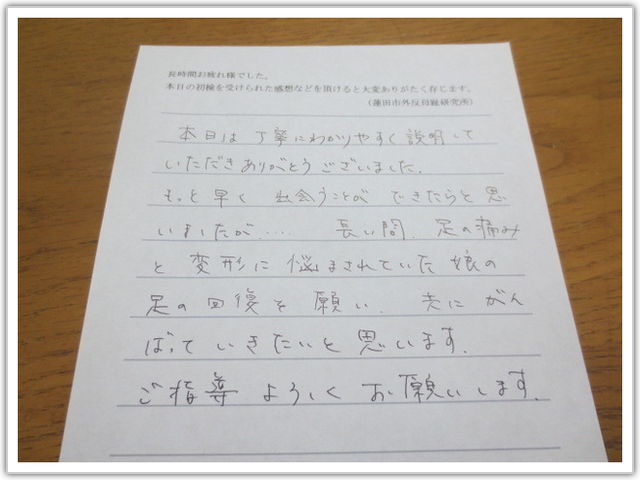 長時間お疲れ様でした。
本日の初検を受けられた感想などを頂けると大変ありがたく存じます。
（蓮田市外反母趾研究所）
本日は丁寧にわかりやすく説明して
いただきありがとうございました。
もっと早く 出会うことが できたらと思
いましたが‥‥‥ 長い間、足の痛み
と変形に悩まされていた娘の
足の回復を願い、共にがん
ばっていきたいと思います。
ご指導よろしくお願いします。